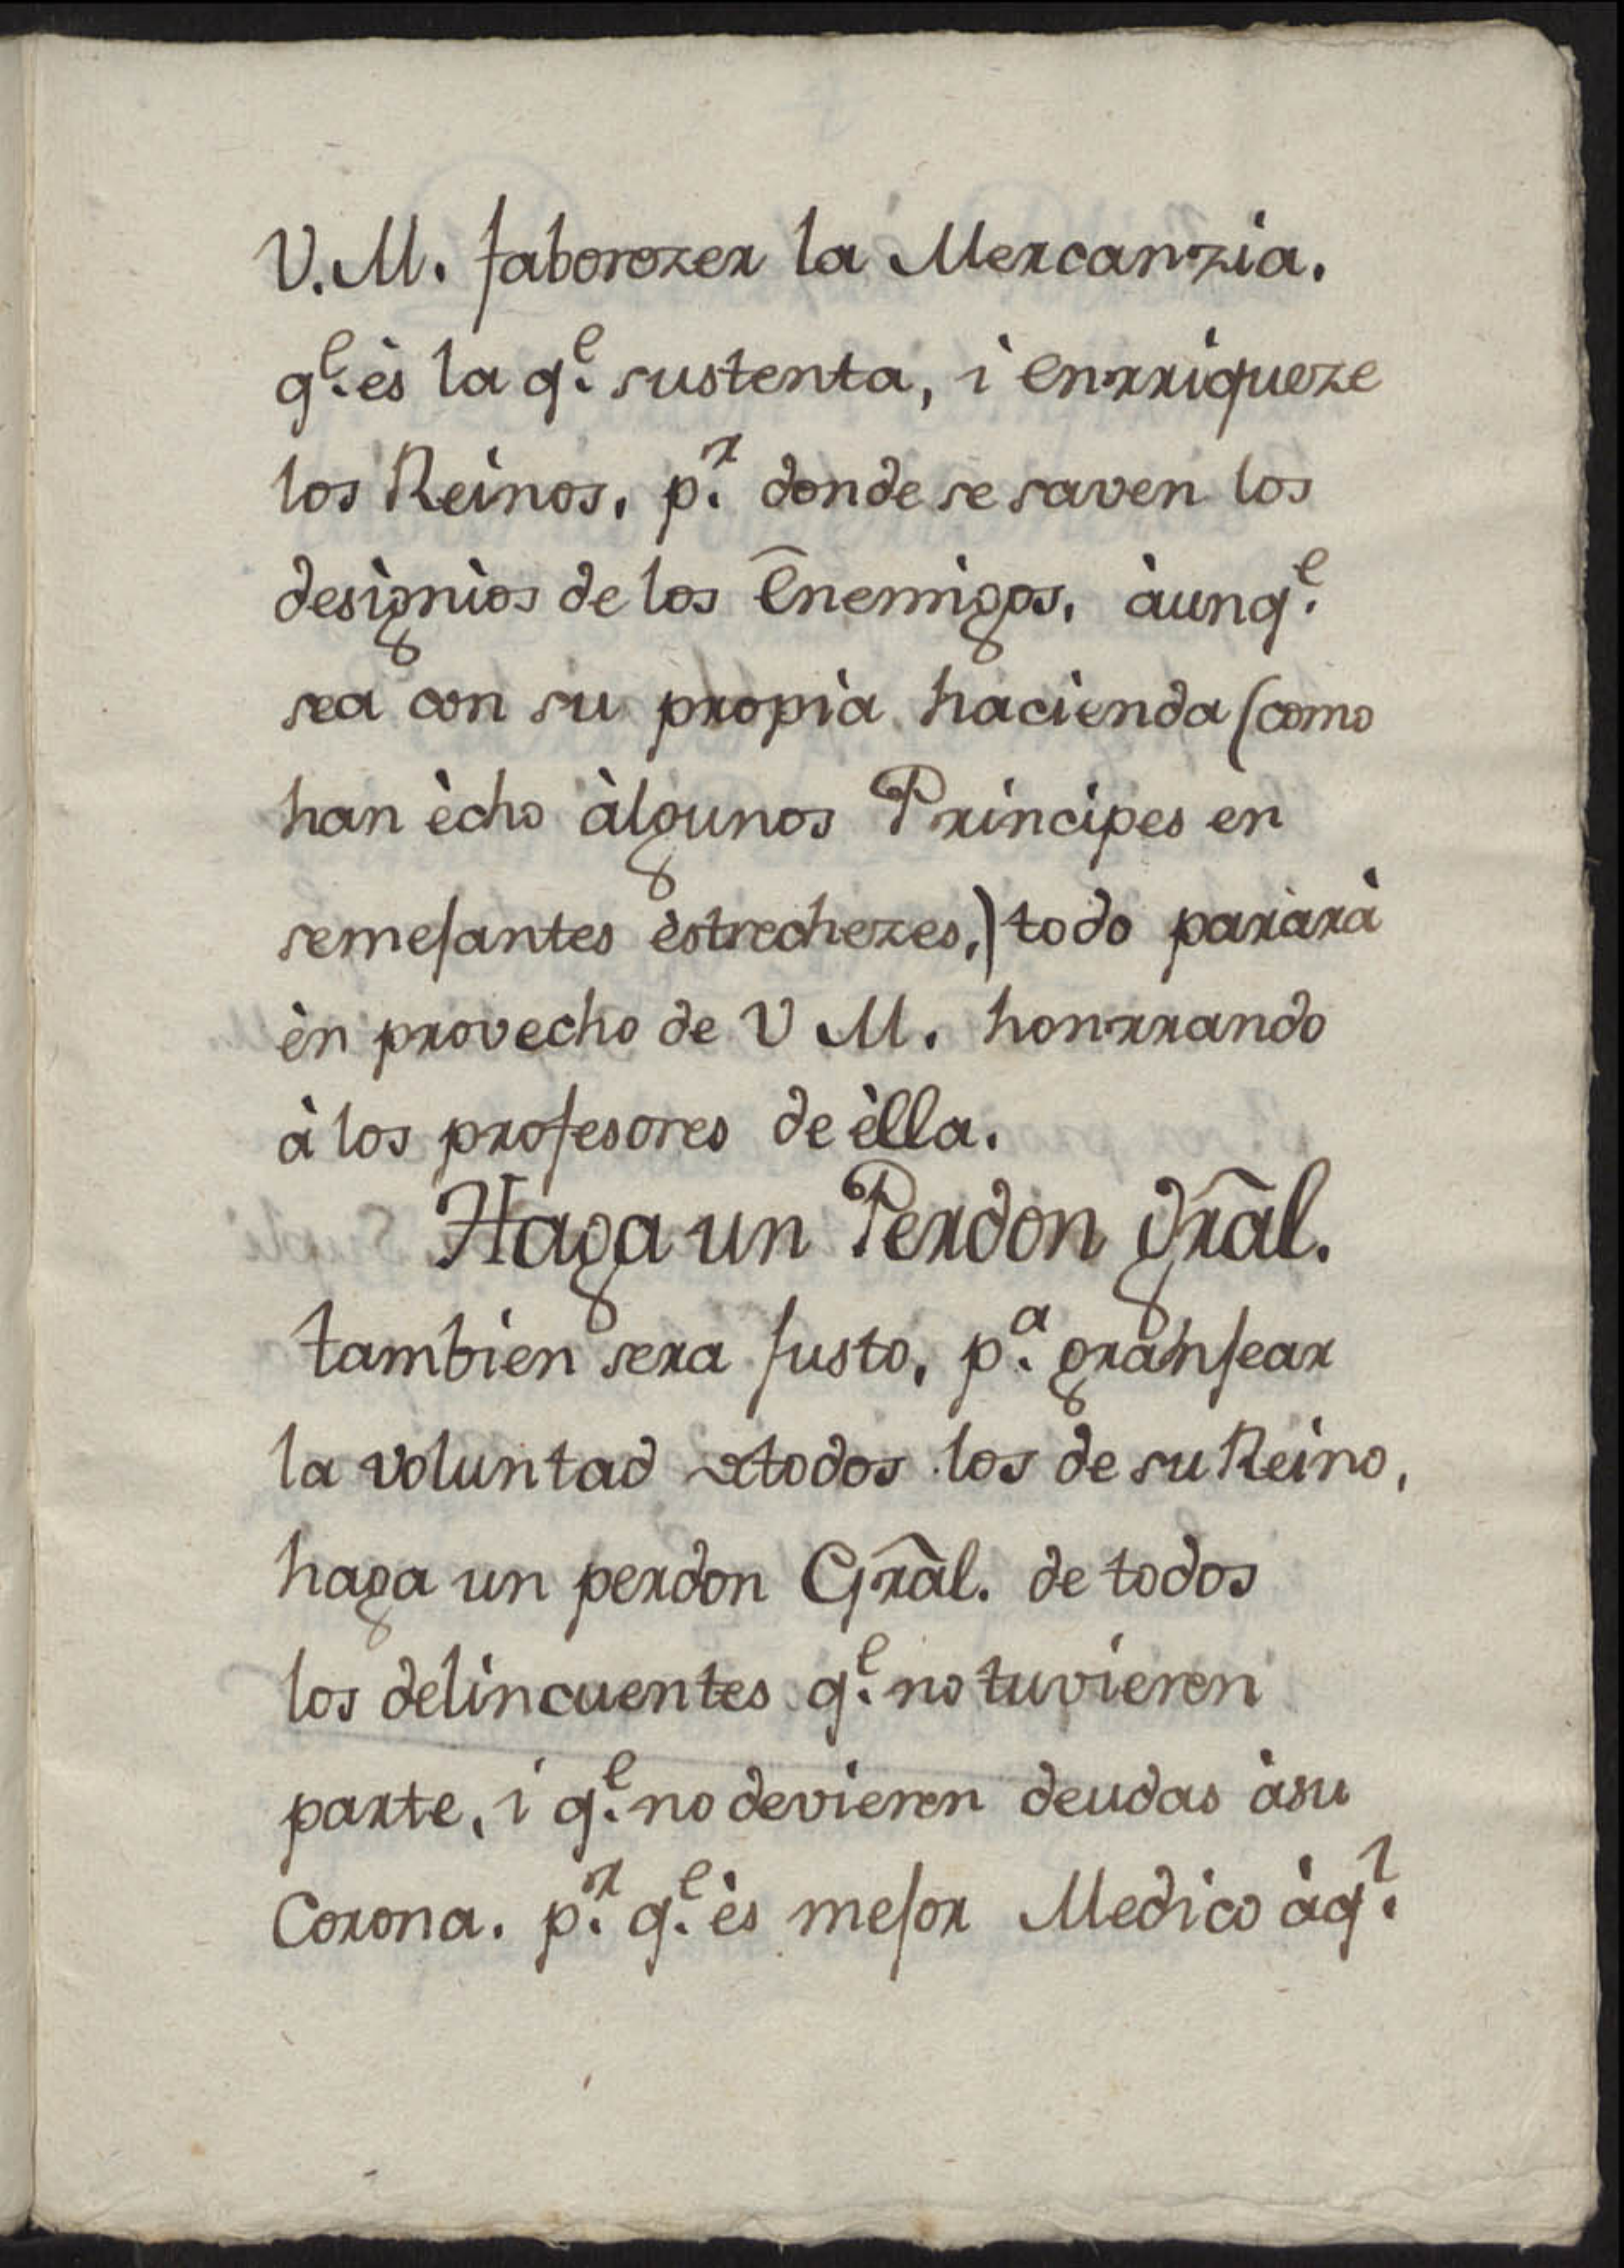 V.M. faborezer la Mercanzia.
q.^e ès la q.^e sustenta, i enrriqueze
los Reinos, p.^r donde se saven los
designios de los Enemigos, àunq.^e
sea con su propia hacienda (como
han ècho àlgunos Principes en
semejantes èstrechezes,) todo pararà
èn provecho de V M. honrrando
à los profesores de èlla.
Haga un Perdon grãl.
tambien sera justo, p.^a granjear
la voluntad de todos los de su Reino,
haga un perdon Grãl. de todos
los delincuentes q.^e no tuvieren
parte, i q.^e no devieren deudas àsu
Corona. p.^r q.^e ès mejor Medico àq.^l